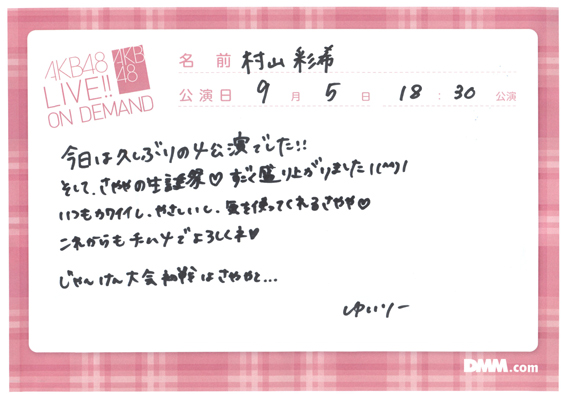 AKB48
LIVE!!
ON DEMAND
AKB
48
名 前 村山 彩希
公演日 9 月 5 日 18 : 30 公演
今日は久しぶりの4公演でした!!
そして、さややの生誕祭♡ すごく盛り上がりました!(^^)!
いつもカワイイし、やさしいし、気を使ってくれるさやや♡
これからもチーム4でよろしくネ♡
じゃんけん大会初戦はさややと...
ゆいりー
DMM.com